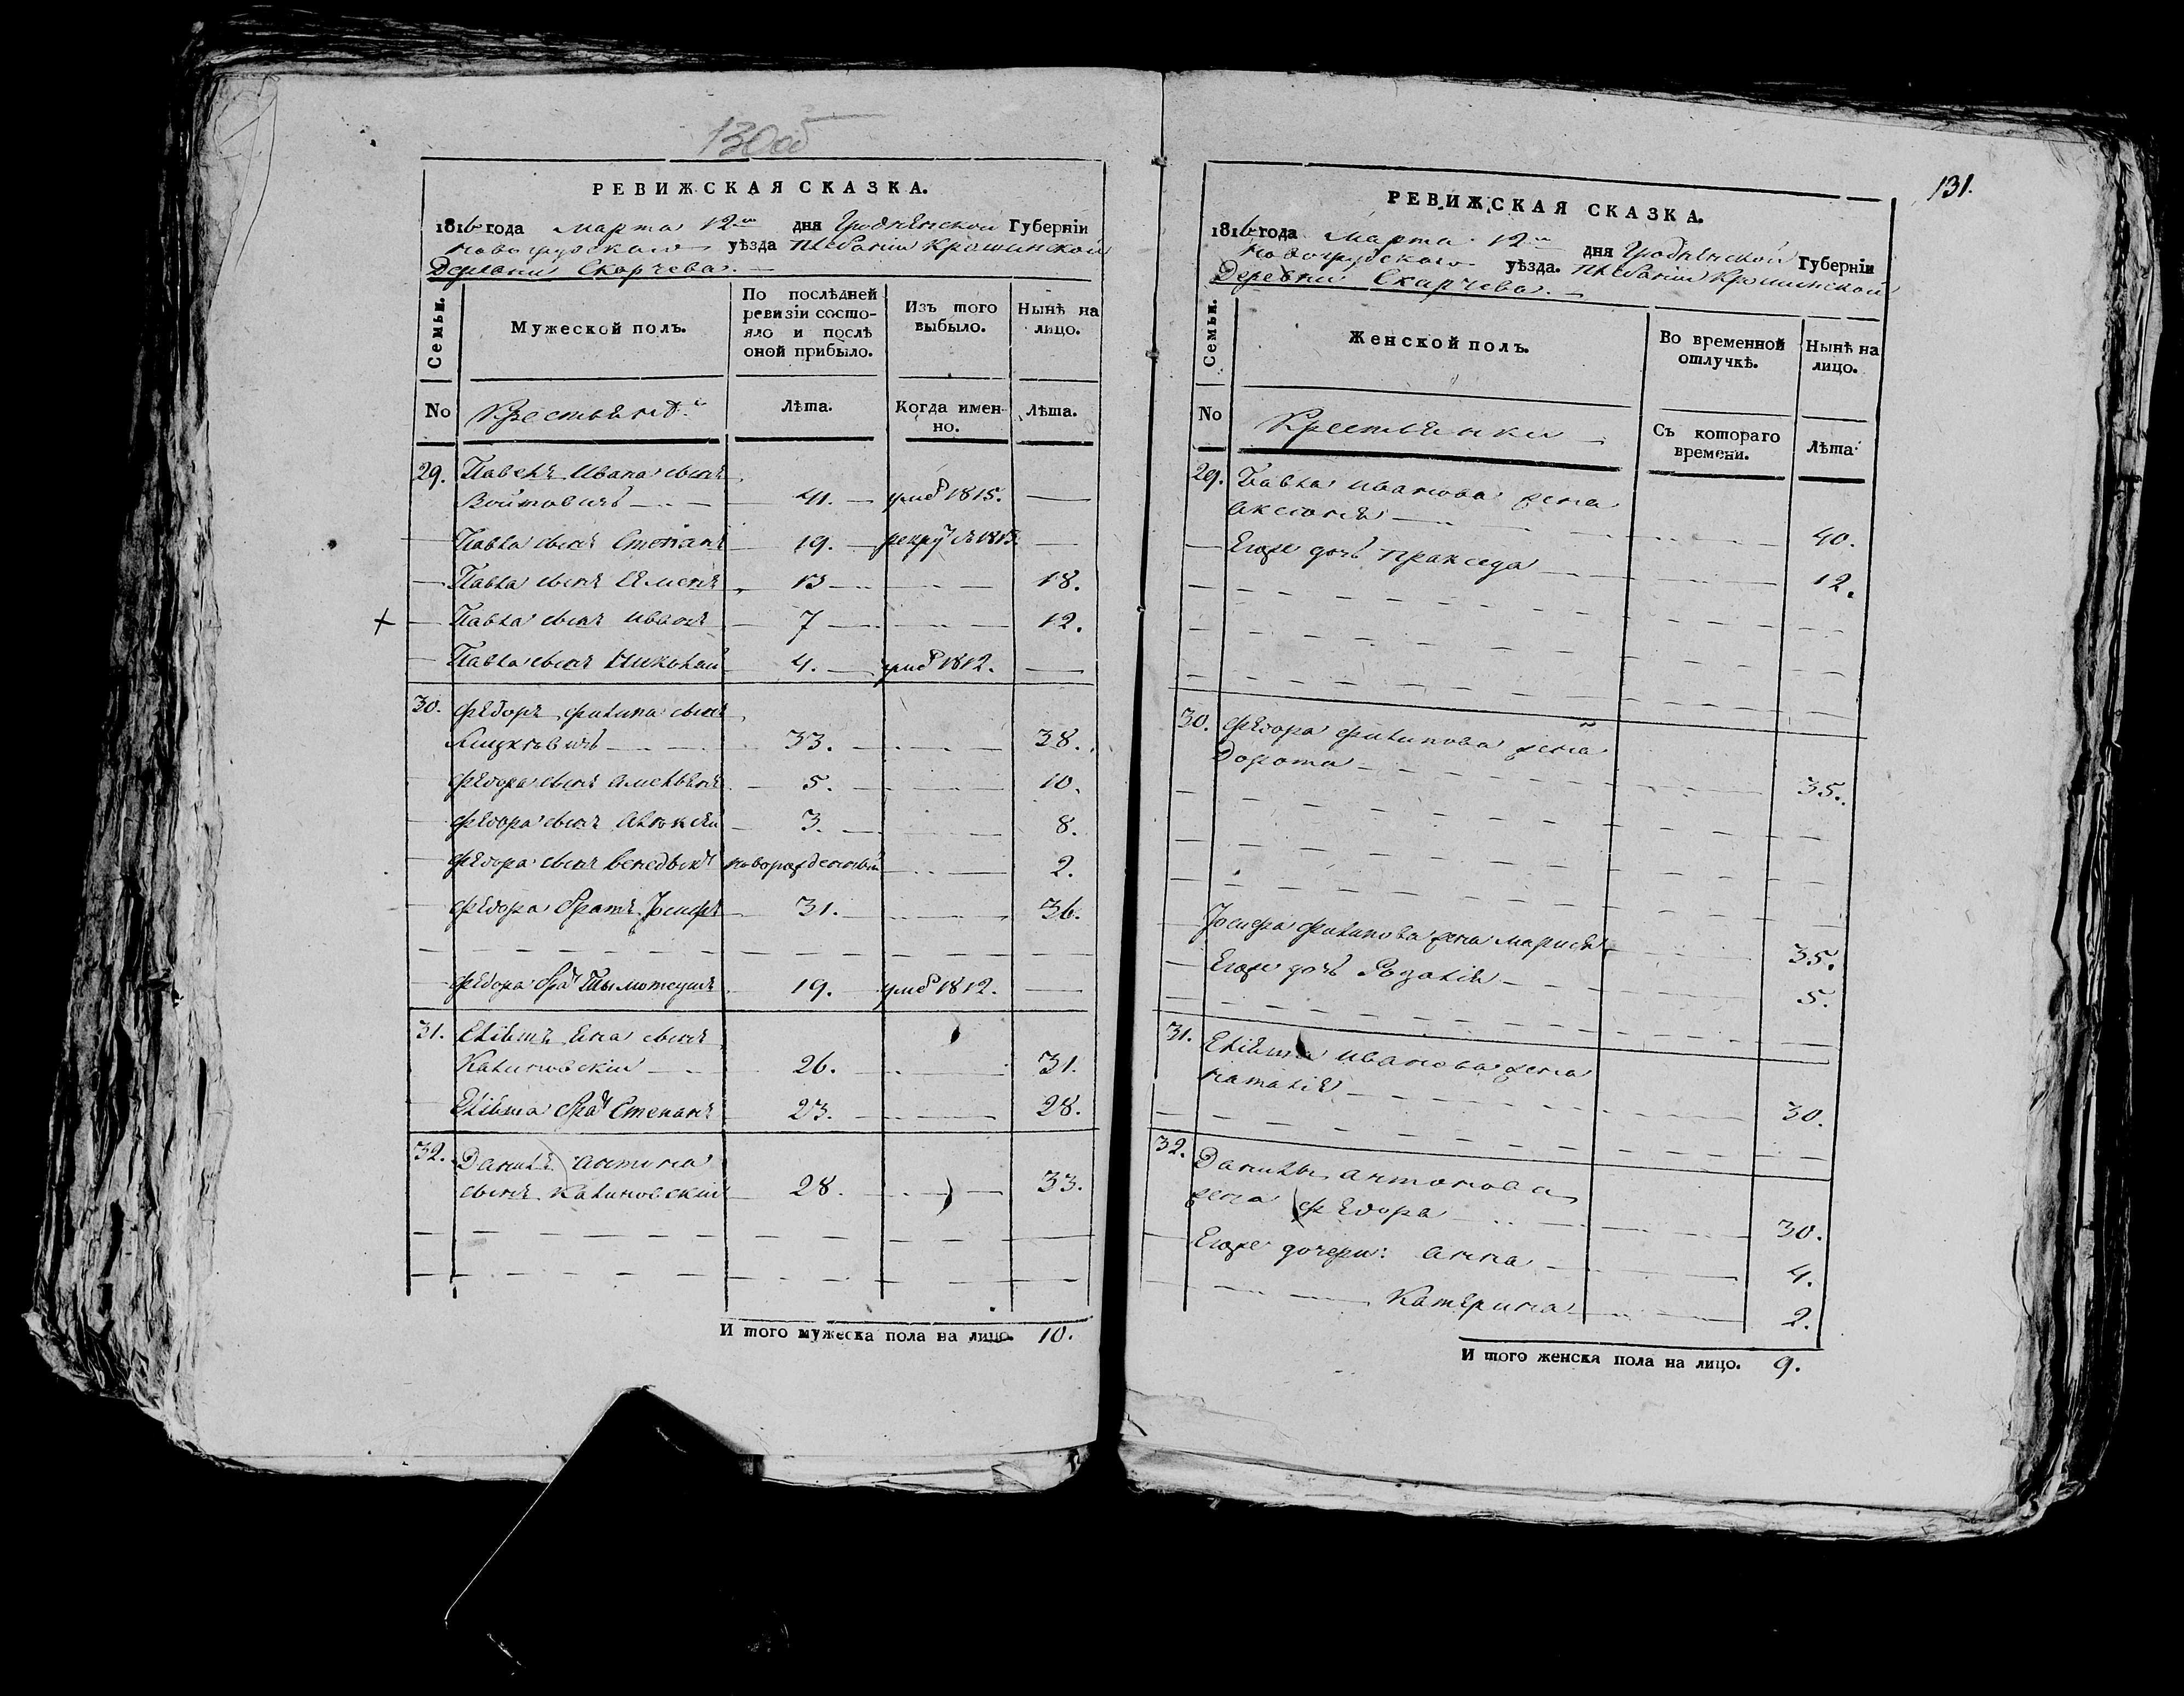 130об
РЕВИЖСКАЯ СКАЗКА.
1816 года марта 12го дня Гродненской Губерніи
Новогрудскаго уѣзда Плебаніи Крошинской
Деревни Скарчева.
Семьи.
Мужеской полъ.
По послѣдней
ревизіи состо-
яло и послѣ
оной прибыло.
Изъ того
выбыло.
Нынѣ на
лицо.
No
Крестьянъ
Лѣта.
Когда имен-
но.
Лѣта.
29. Павелъ Ивана сынъ
Войтовичъ 41. умеръ 1815.
Павла сынъ Степанъ 19. рекру 1815.
Павла сынъ 13 18.
Павла сынъ Иванъ 7 12.
Павла сынъ Николай 4. умер 1812.
30. Федоръ Филипа сынъ
33. 38.
Федора сынъ Амельянъ 5. 10.
Федора сынъ Алексей 3. 8.
Федора сынъ Венедыкт новорожденный 2.
Федора братъ Іосифъ 31. 36.
Федора брат Тымотеушъ 19. умер 1812.
31. сынъ
Калиновскій 26. 31.
брат Степанъ 23. 28.
32. Данила Антона
сынъ Калиновскій 28. 33.
И того мужеска пола на лицо. 10.
131.
РЕВИЖСКАЯ СКАЗКА.
1816 года Марта 12го дня Гродненской Губерніи
Новогрудскаго уѣзда. Плебаніи Крошинской
Деревни Скарчева.
Семьи.
Женской полъ.
Во временной
отлучкѣ.
Нынѣ на
лицо.
No
Крестьянки
Съ котораго
времени.
Лѣта
29. Павла Иванова жена
Аксюня 40.
Егоже дочь Пракседа 12.
30. Федора Филипова жена
Дорота 35.
Іосифа Филипова жена Марися 35.
Егоже дочь Розалія 5.
31. Иванова жена
Наталія 30.
32. Данилы Антонова
жена Федора 30.
Егоже дочери: Анна 4.
Катерина 2.
И того женска пола на лицо. 9.